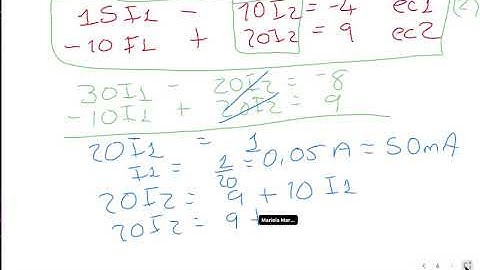 15I1 - 10I2 = -4 ec1 (2)
-10I1 + 20I2 = 9 ec2
30I1 - 20I2 = -8
-10I1 + 20I2 = 9
20I1 = 1
I1 = 1/20 = 0,05A = 50mA
20I2 = 9 + 10I1
20I2 = 9 +
Mariela Mar...